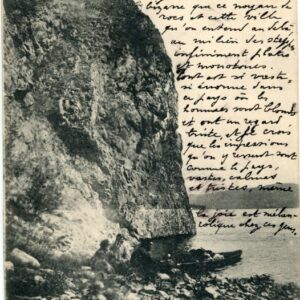 bizarre que ce noyau de
rocs et cette ville
qu'on entend au delà
au milieu des steppes
infiniment plates
et monotones.
Tout est si vaste,
si énorme dans
ce pays où les
hommes sont blonds
et ont un regard
triste. Et je crois
que les impressions
qu'on y ressent sont
comme le pays,
vastes, calmes
et tristes, même
la joie est mélan-
colique chez ces gens.